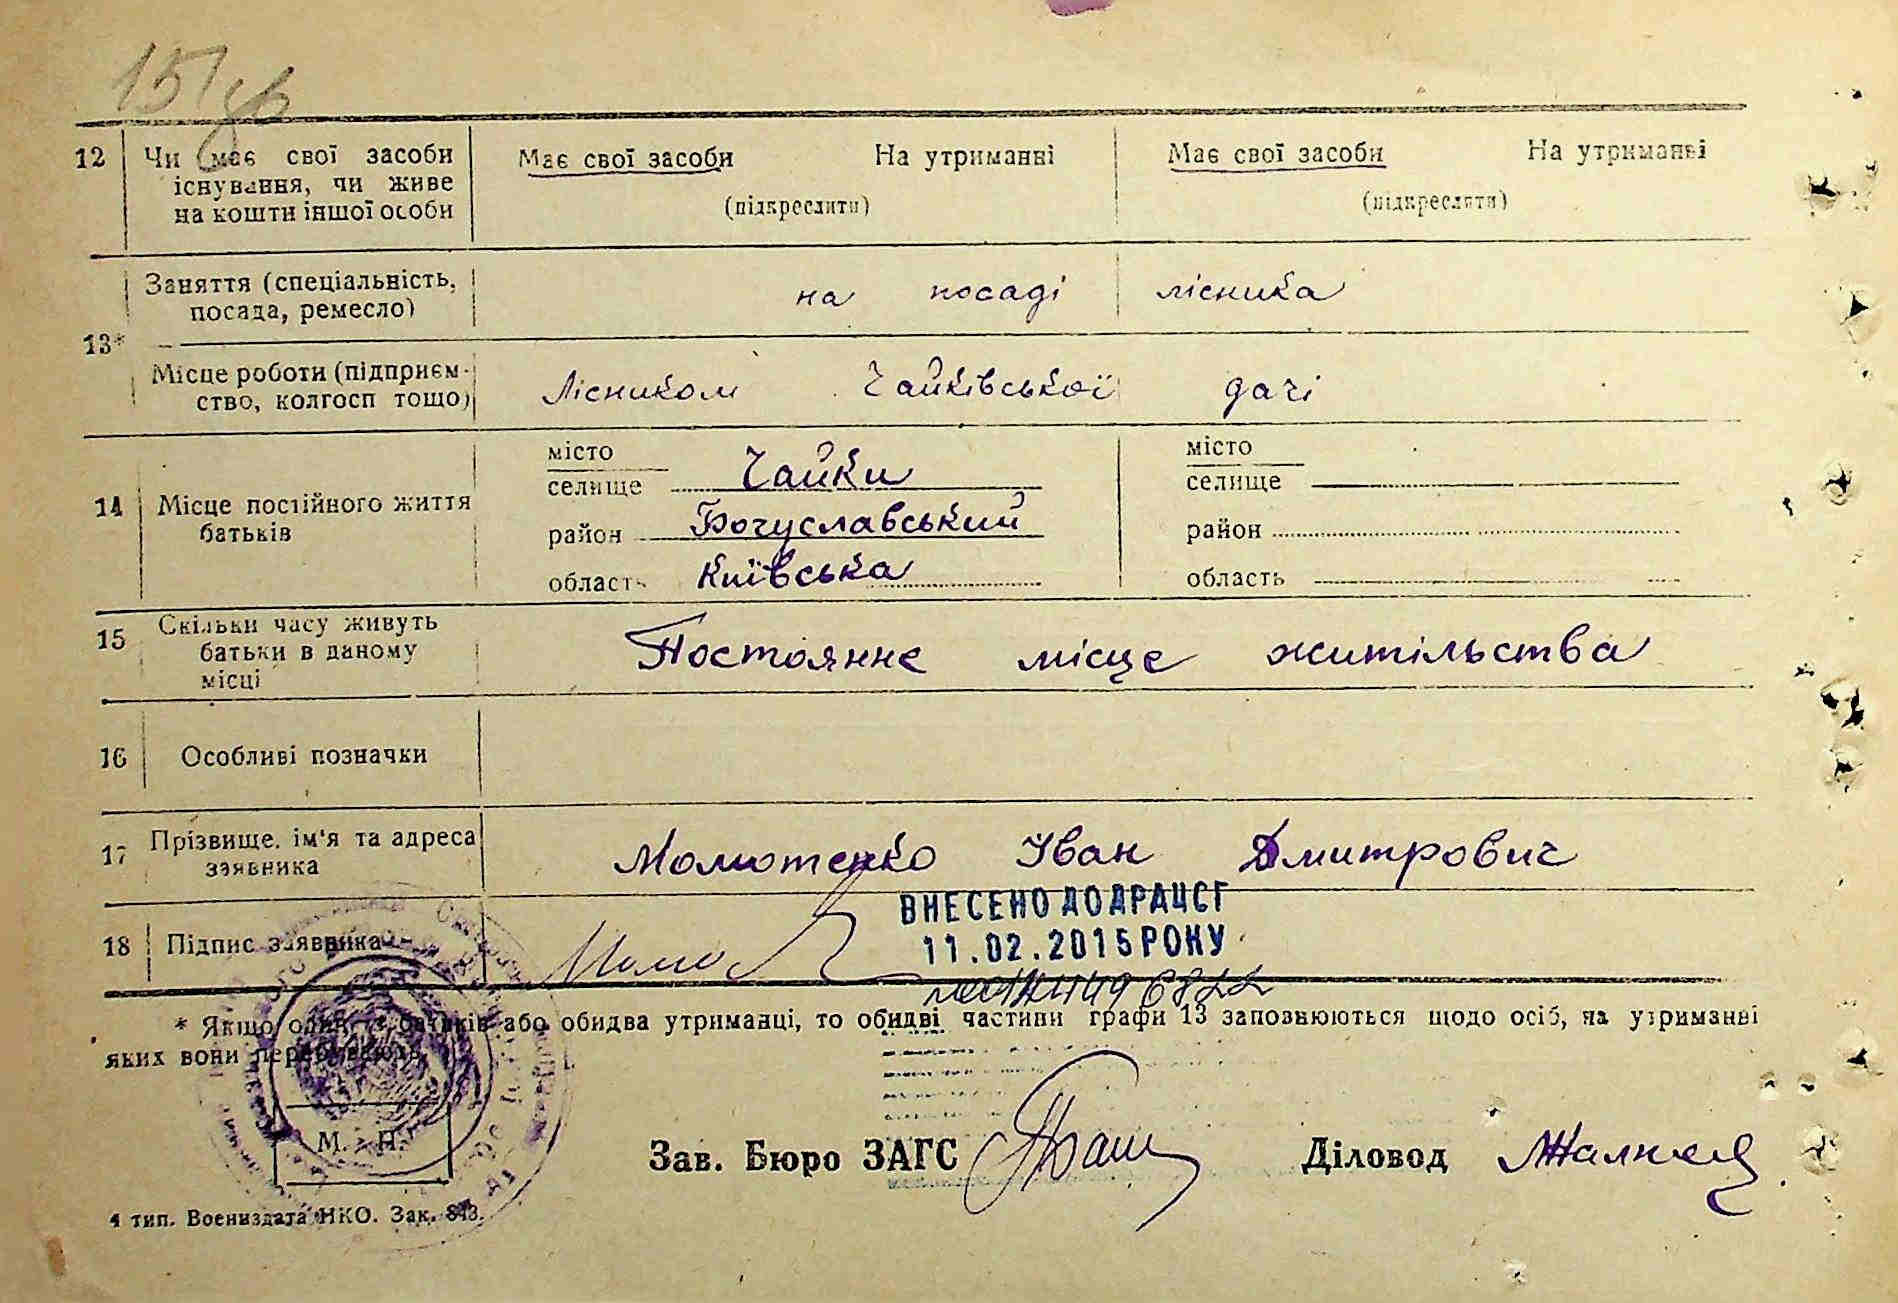 151 зв
12 Чи має свої засоби існування, чи живе на кошти іншої особи
Має свої засоби На утриманні
(підкреслити)
Має свої засоби На утриманні
(підкреслити)
13*
Заняття (спеціальність, посада, ремесло)
на посаді лісника
Місце роботи (підприємство, колгосп тощо)
Лісником Чайківської дачі
14 Місце постійного життя батьків
місто
селище Чайки
район Богуславський
область Київська
місто
селище
район
область
15 Скільки часу живуть батьки в даному місці
Постоянне місце житільства
16 Особливі позначки
17 Прізвище, ім'я та адреса заявника
Момотенко Іван Дмитрович
18 Підпис заявника
ВНЕСЕНО ДО ДРАЦСГ
11.02.2015 РОКУ
* Якщо один з батьків або обидва утриманці, то обидві частини графи 13 заповнюються щодо осіб, на утриманні
яких вони перебувають.
М. П.
Зав. Бюро ЗАГС
Діловод
4 тип. Воениздата НКО. Зак. 843.